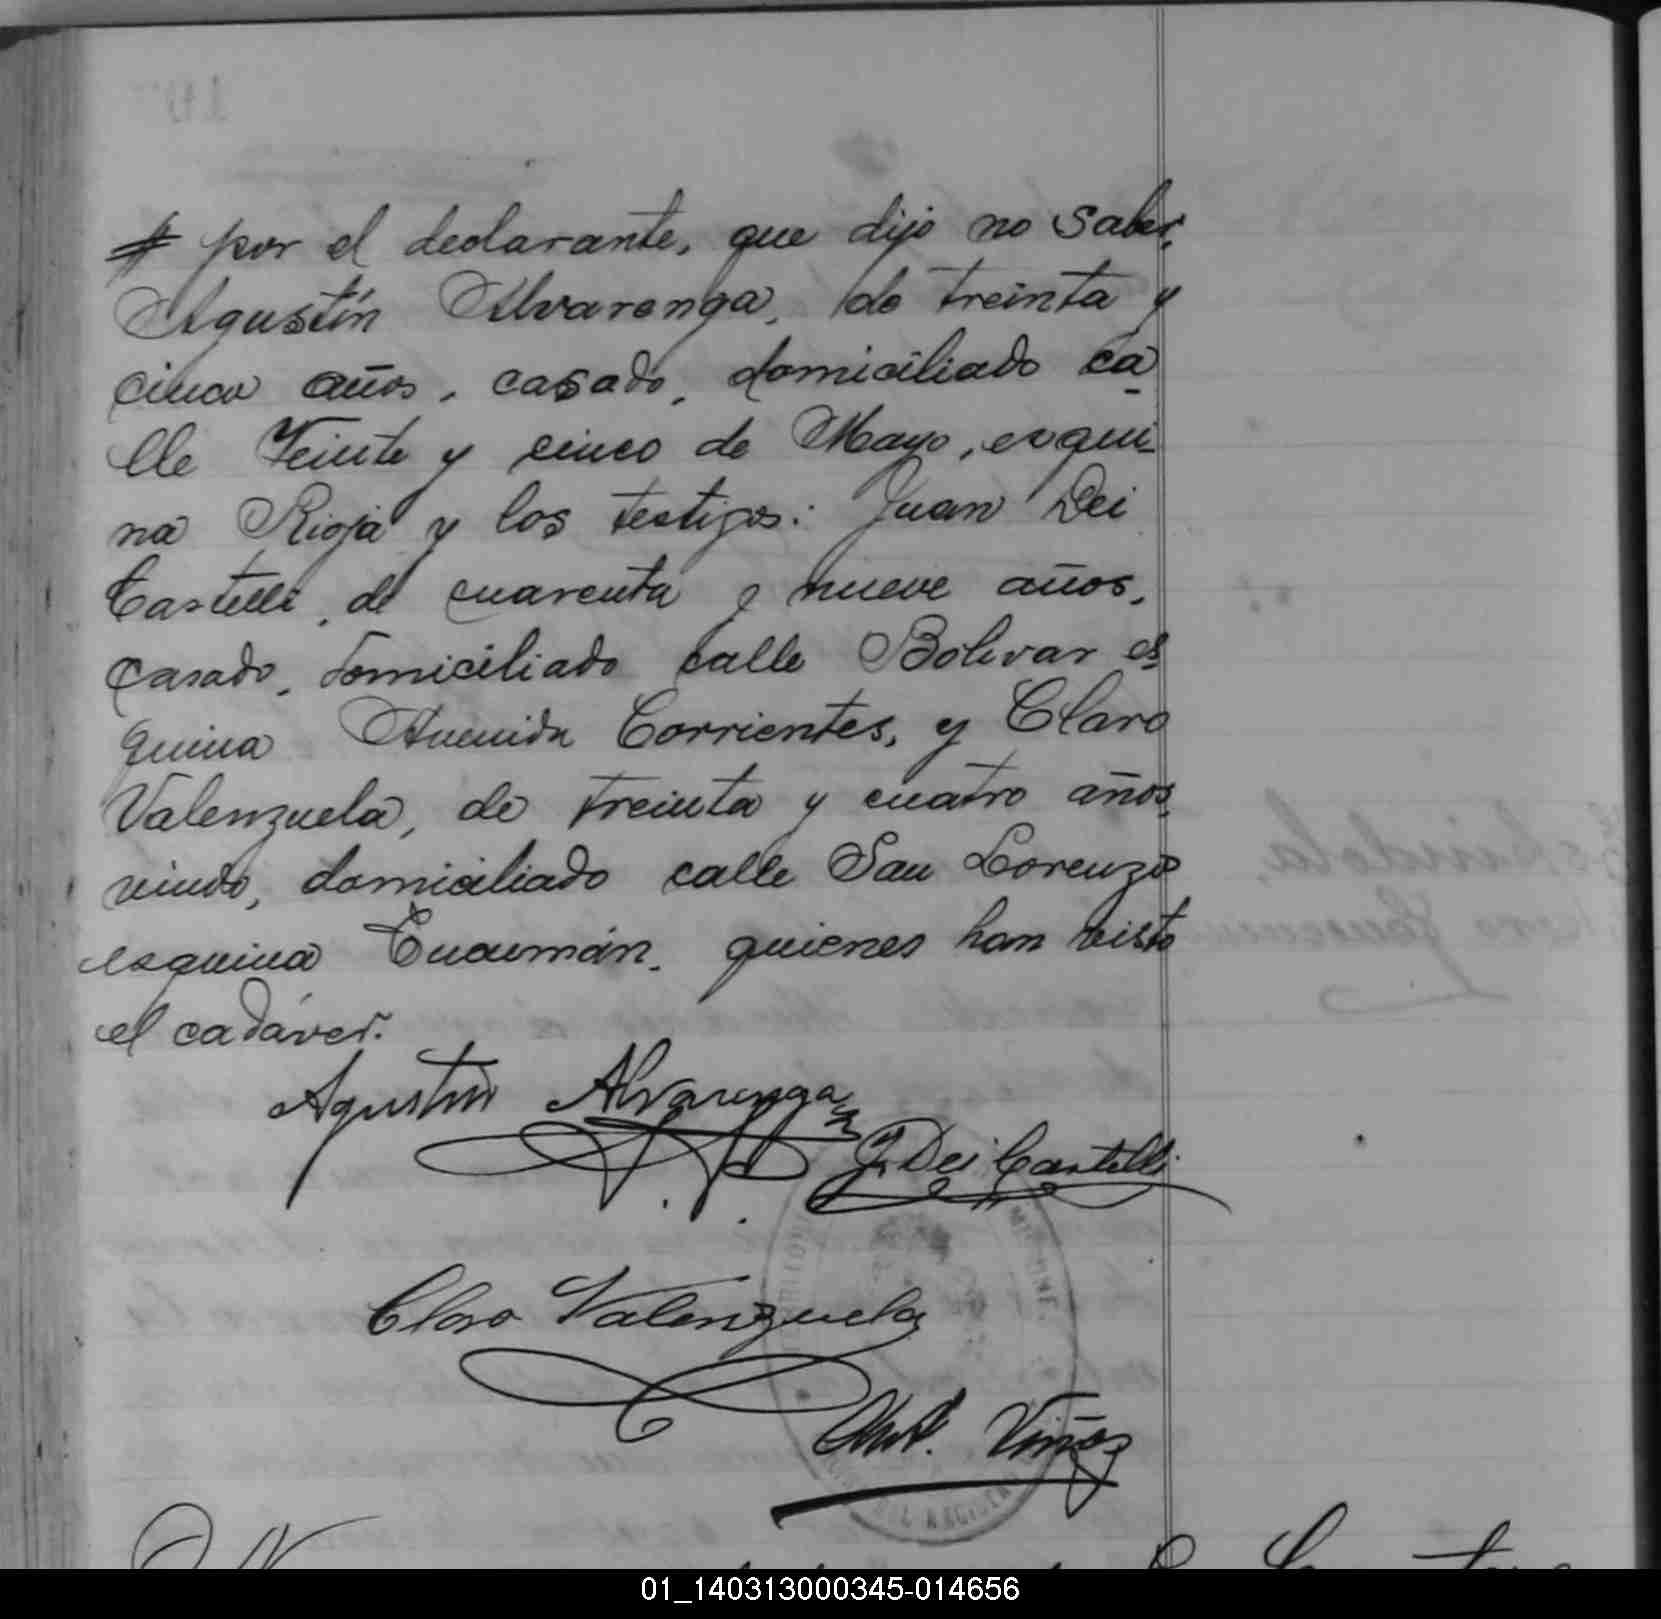 # por el declarante, que dijo no saber,
Agustín Alvarenga, de treinta y
cinco años, casado, domiciliado ca
lle Veinte y cinco de Mayo, esqui-
na Rioja y los testigos: Juan Dei
Castelli, de cuarenta y nueve años,
casado, domiciliado calle Bolivar es
quina Avenida Corrientes, y Claro
Valenzuela, de treinta y cuatro años,
viudo, domiciliado calle San Lorenzo
esquina Tucumán, quienes han visto
el cadáver.
Agustin Alvarenga
J. Dei Castelli
Claro Valenzuela
Ant. Viñas
01_140313000345-014656